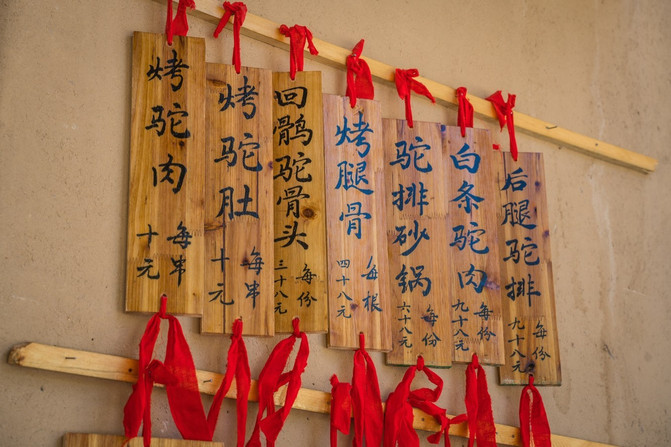 烤驼肉
每串
十元
烤驼肚
每串
十元
回鹘驼骨头
每份
三十八元
烤腿骨
每根
四十八元
驼排砂锅
每份
六十八元
白条驼肉
每份
九十八元
后腿驼排
每份
九十八元